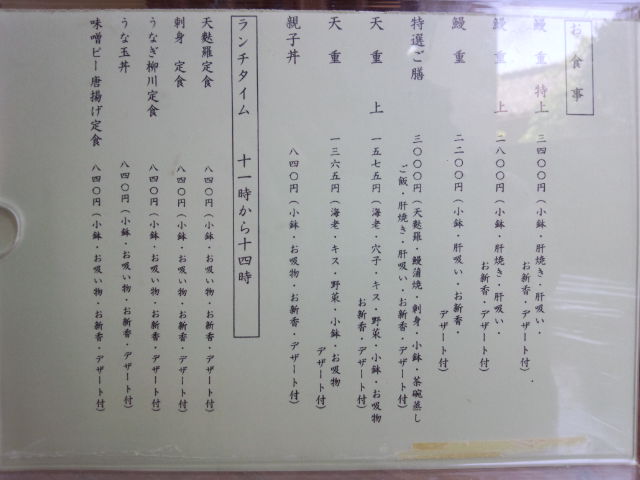 お食事
鰻重 特上 三四〇〇円（小鉢・肝焼き・肝吸い・
お新香・デザート付）
鰻重 上 二八〇〇円（小鉢・肝焼き・肝吸い・
お新香・デザート付）
鰻重 二二〇〇円（小鉢・肝吸い・お新香・
デザート付）
特選ご膳 三〇〇〇円（天麩羅・鰻蒲焼・刺身・小鉢・茶碗蒸し
ご飯・肝焼き・肝吸い・お新香・デザート付）
天重 上 一五七五円（海老・穴子・キス・野菜・小鉢・お吸物
お新香・デザート付）
天重 一三六五円（海老・キス・野菜・小鉢・お吸物
デザート付）
親子丼 八四〇円（小鉢・お吸物・お新香・デザート付）
ランチタイム 十一時から十四時
天麩羅定食 八四〇円（小鉢・お吸い物・お新香・デザート付）
刺身 定食 八四〇円（小鉢・お吸い物・お新香・デザート付）
うなぎ柳川定食 八四〇円（小鉢・お吸い物・お新香・デザート付）
うな玉丼 八四〇円（小鉢・お吸い物・お新香・デザート付）
味噌ピー唐揚げ定食 八四〇円（小鉢・お吸い物・お新香・デザート付）